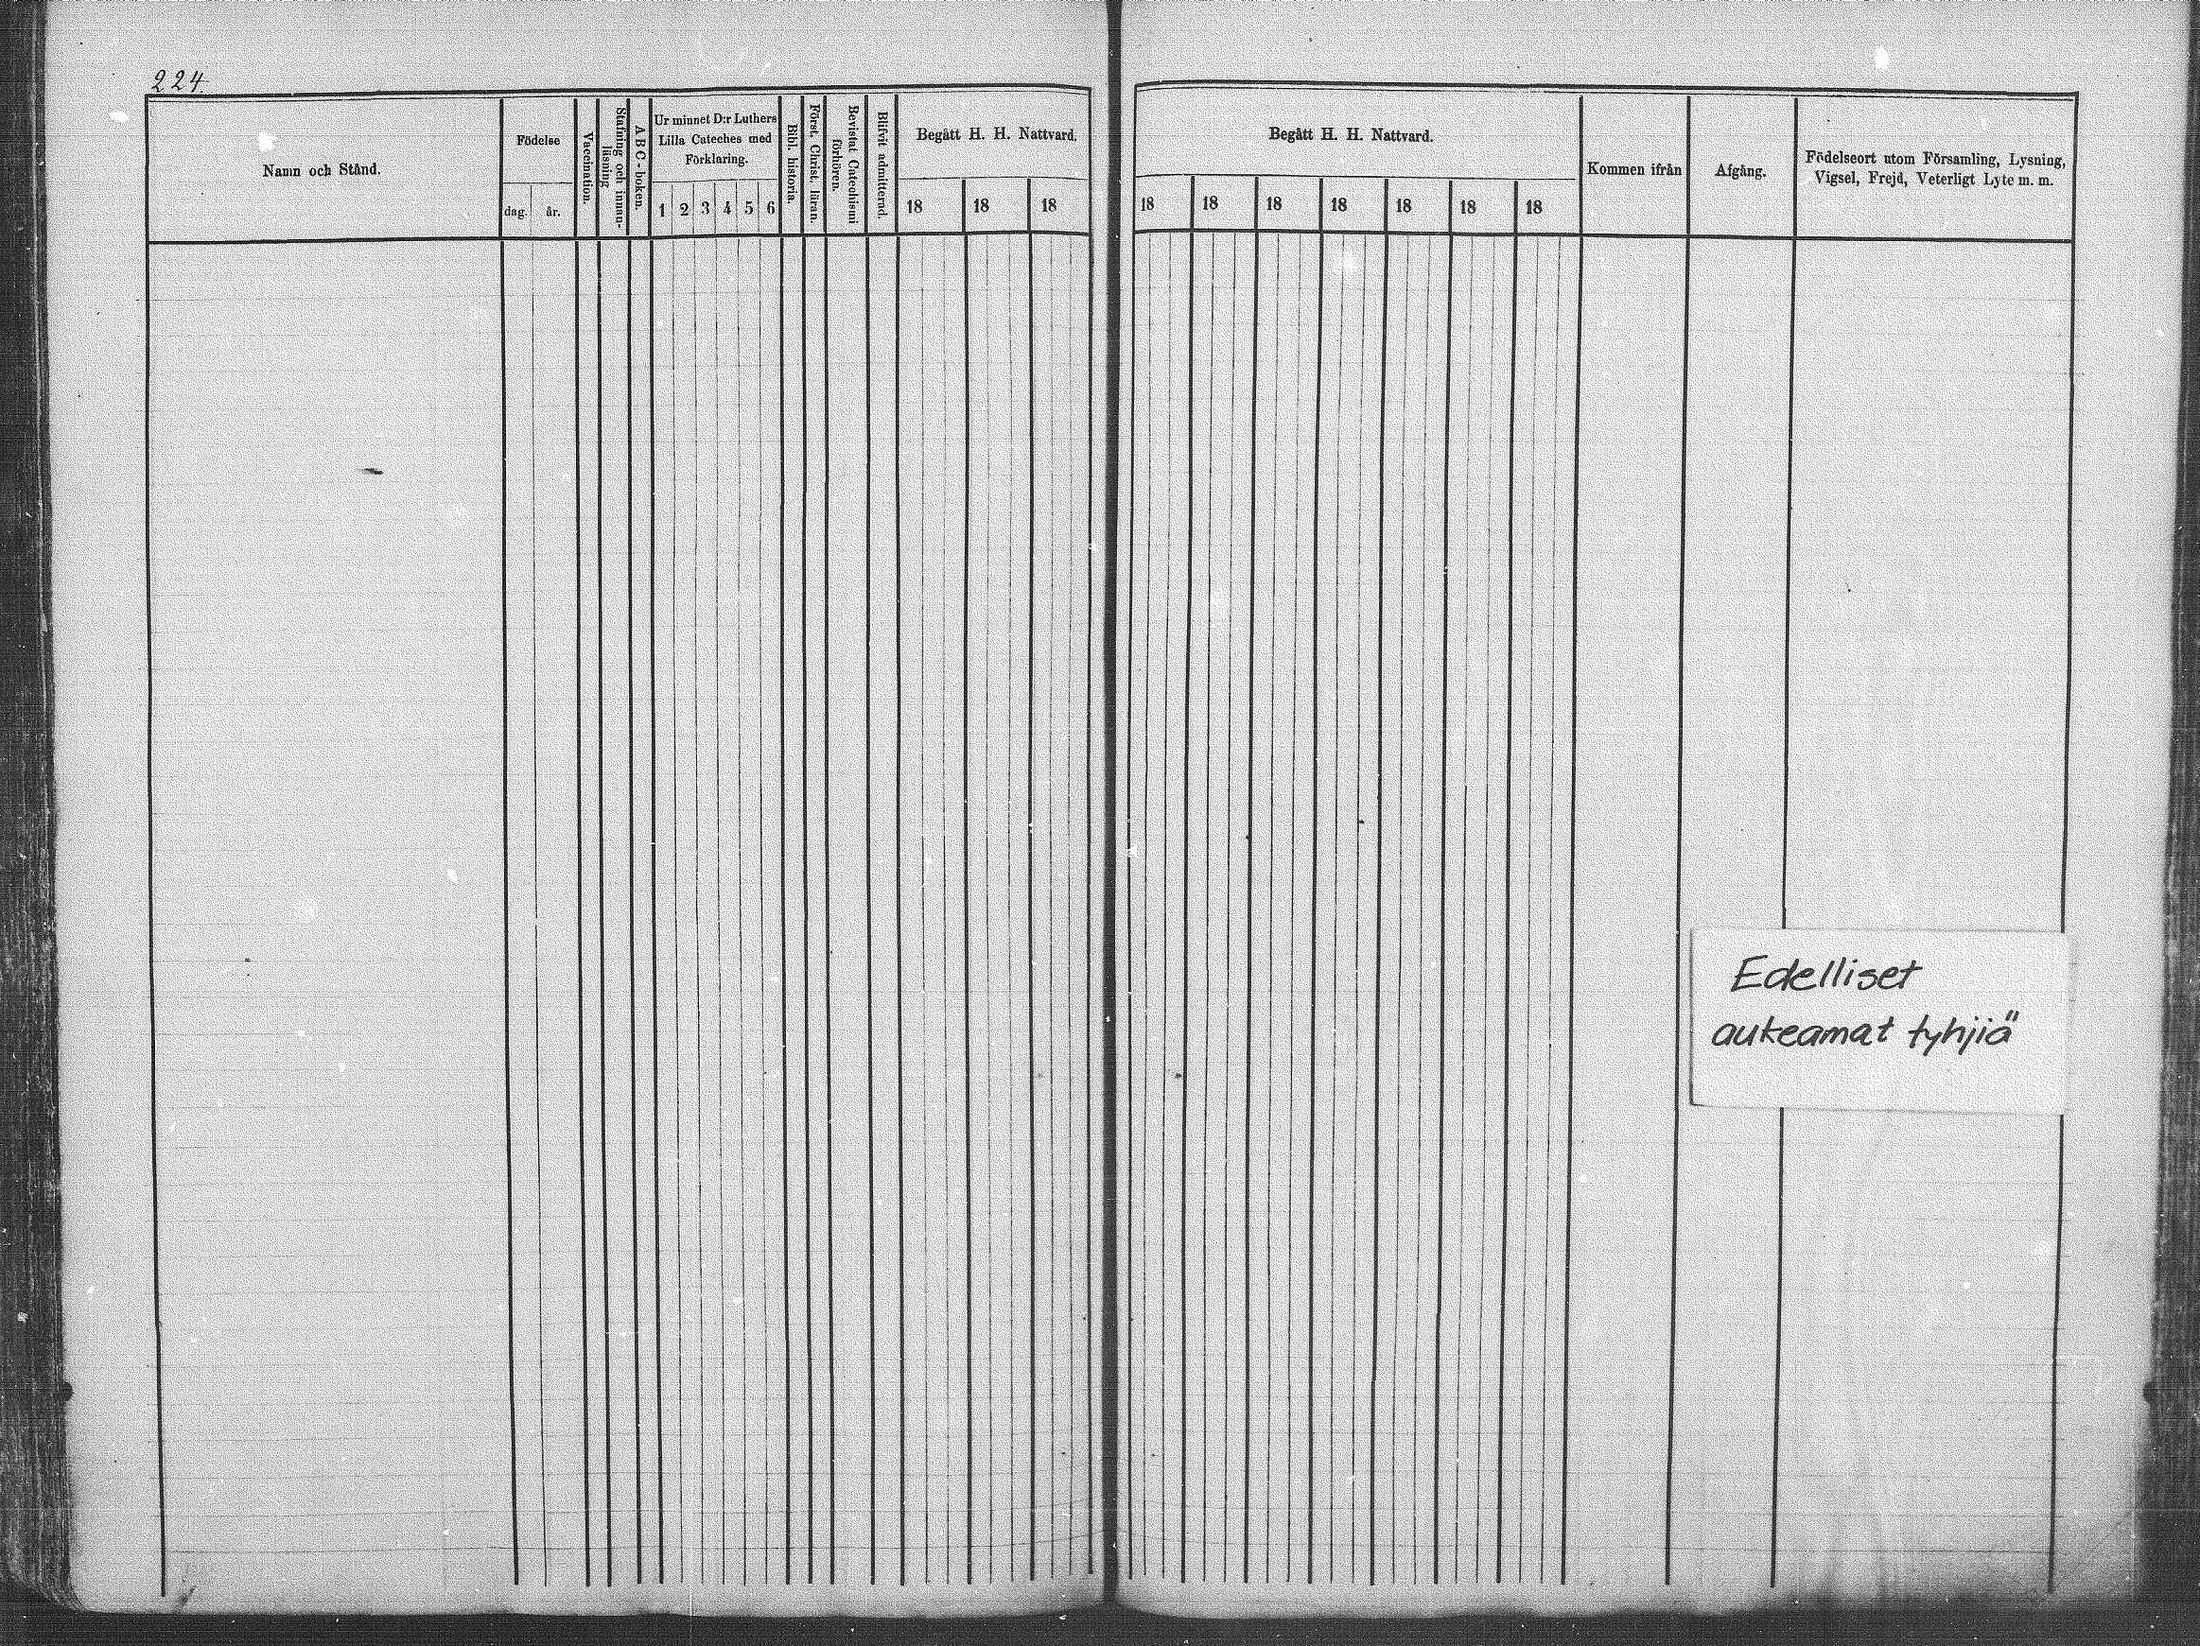 224.
Namn och Stånd.
Födelse
dag.
år.
Vaccination.
Stafning och innan-
läsning
ABC-boken.
Ur minnet D:r Luthers
Lilla Cateches med
Förklaring.
1 2 3 4 5 6
Bibl. historia.
Först. Christ. läran.
Bevistat Catechismi
förhören.
Blifvit admitterad.
Begått H. H. Nattvard.
18 18 18
Begått H. H. Nattvard.
18 18 18 18 18 18 18
Kommen ifrån
Afgång.
Födelseort utom Församling, Lysning,
Vigsel, Frejd, Veterligt Lyte m. m.
Edelliset
aukeamat tyhjiä